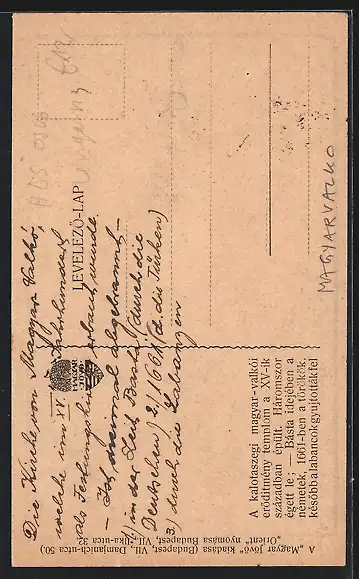 A „Magyar Jövő" kiadása (Budapest, VII., Damjanich-utca 50.)
„Orient" nyomása Budapest, VII., Ilka-utca 32.
A kalotaszegi magyar-valkói
erődítmény templom a XV-ik
században épült. Háromszor
égett le; — Básta idejében a
németek, 1661-ben a törökök,
később a labancok gyujtották fel
MAGYAR
JÖVŐ
LEVELEZŐ-LAP
Die Kirche von Magyar Valkó,
welche im XV. Jahrhundert
als Festungskirche erbaut wurde
– Ist dreimal abgebrannt –
1) in der Zeit Basta (durch die
Deutschen) 2) 1661 (d. die Türken)
3) durch die Labanzen
MAGYARVALKO
Ungarn